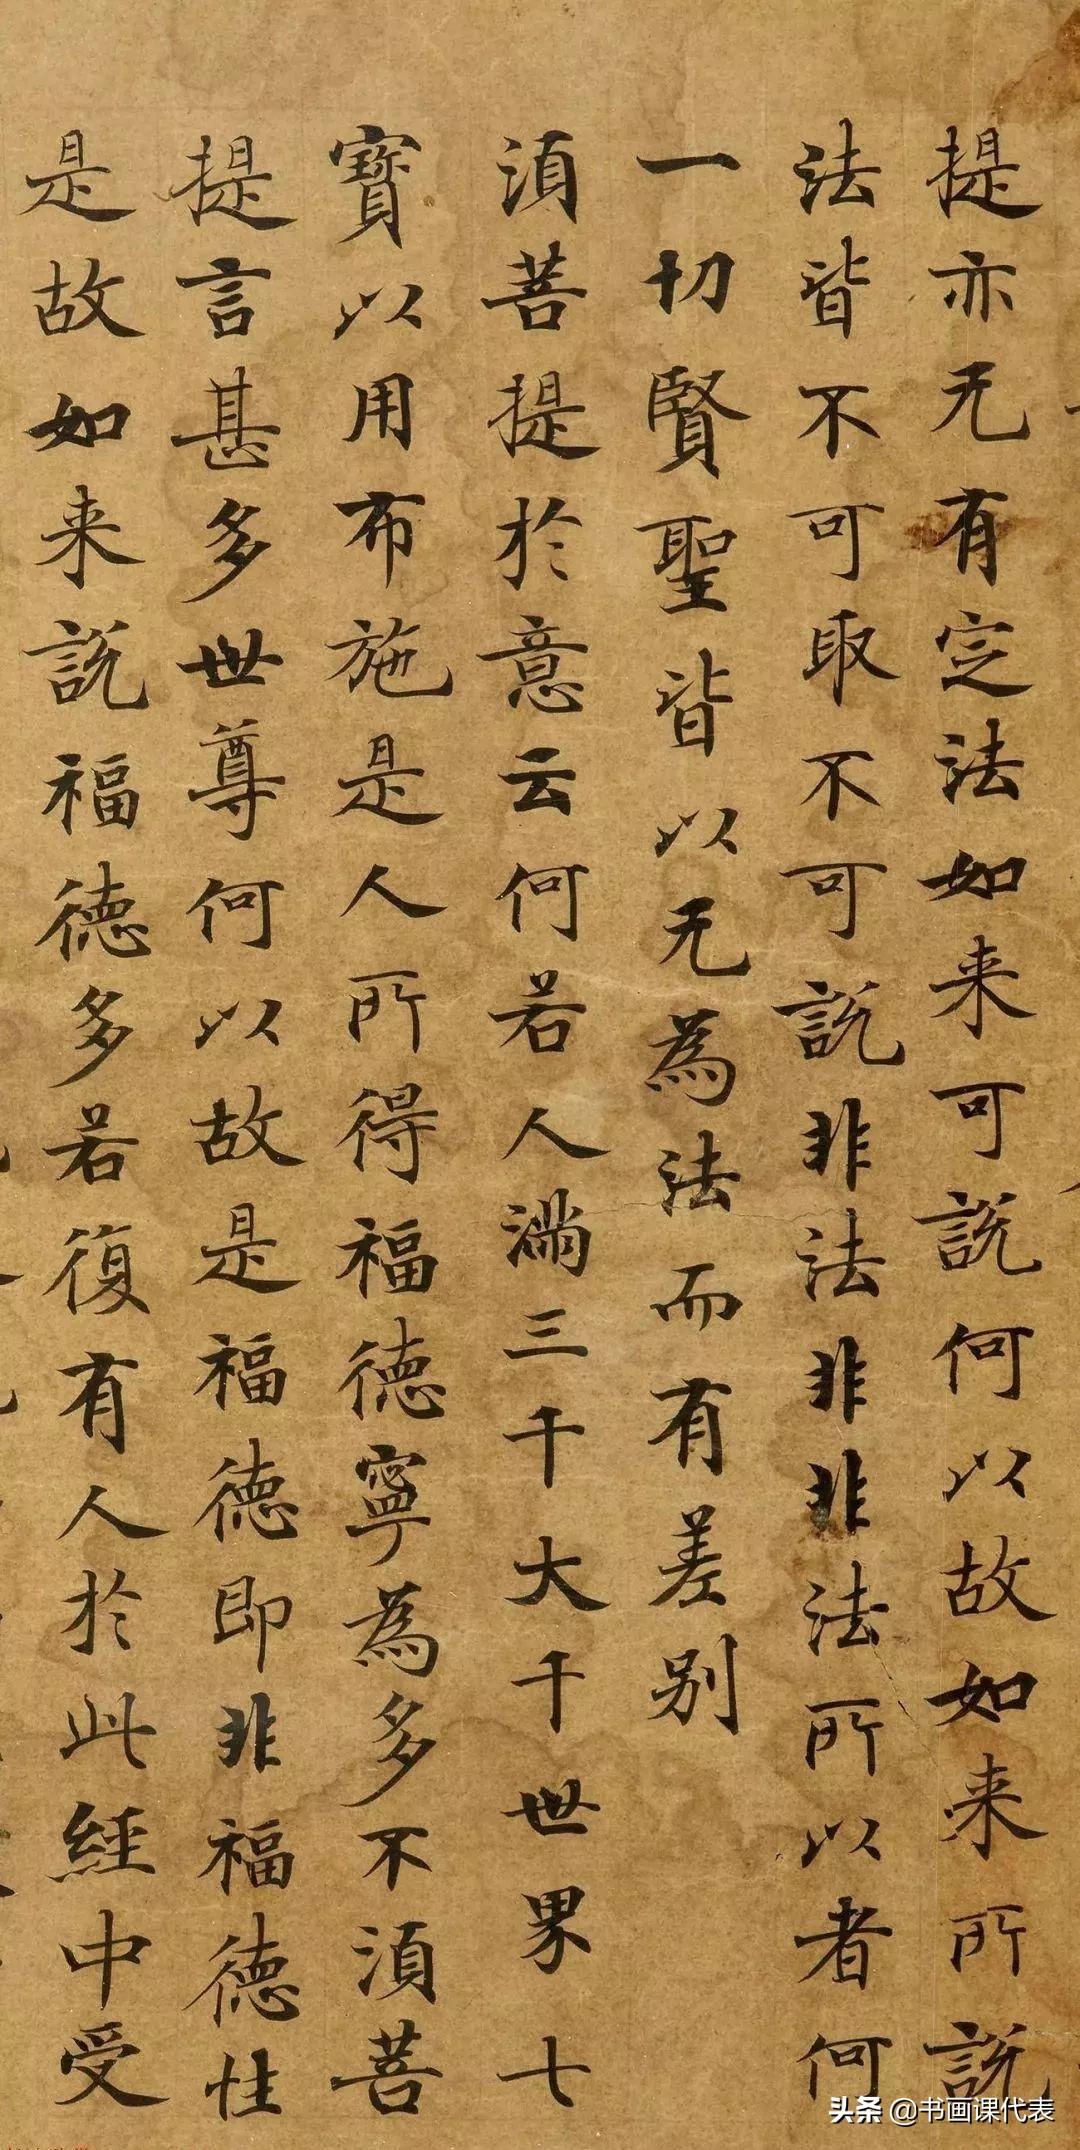 提亦无有定法如来可說何以故如来所說
法皆不可取不可說非法非非法所以者何
一切賢聖皆以无為法而有差别
湏菩提於意云何若人滿三千大千世界七
寳以用布施是人所得福德寧為多不湏菩
提言甚多世尊何以故是福德即非福德性
是故如来說福德多若復有人於此經中受
头条 @书画课代表